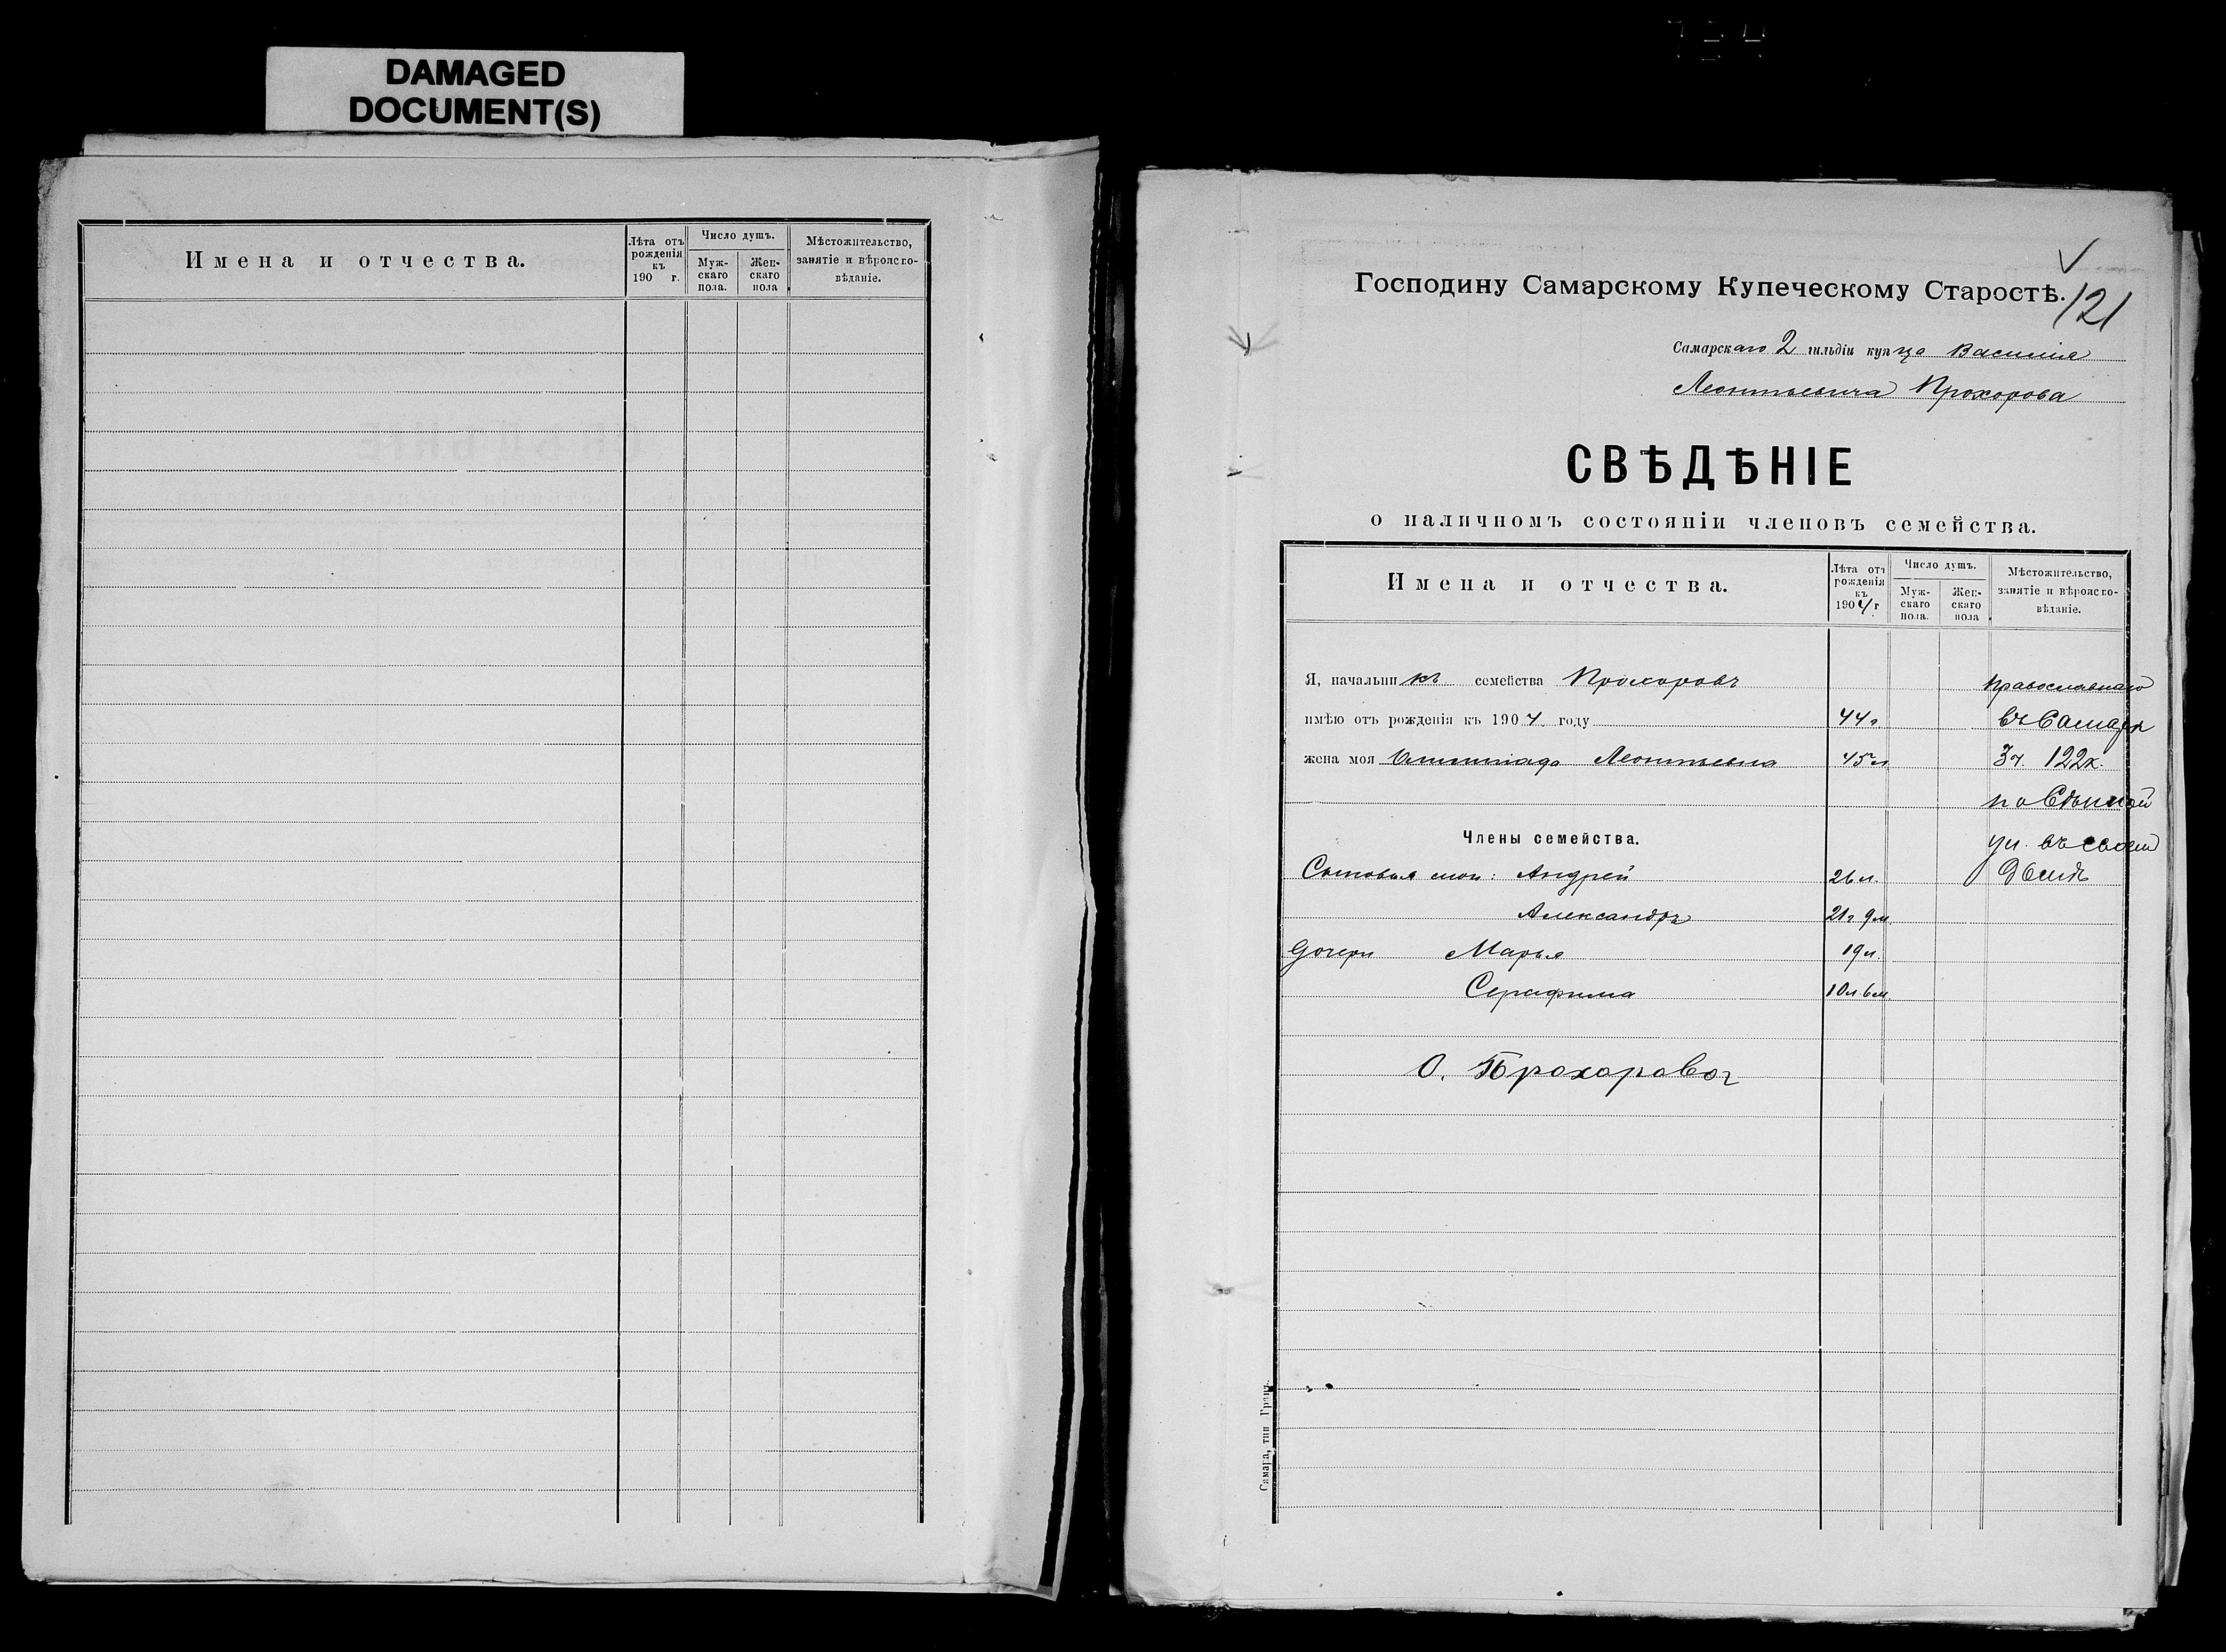 DAMAGED
DOCUMENT(S)
Имена и отчества.
Лѣта отъ рожденія къ 190 г.
Число душъ.
Муж-скаго пола.
Жен-скаго пола
Мѣстожительство, занятіе и вѣроиспо-вѣданіе.
Господину Самарскому Купеческому Старостѣ.
121
Самарскаго 2 гильдіи купца Василія
Леонтьевича Прохорова
СВѢДѢНІЕ
о наличномъ состояніи членовъ семейства.
Имена и отчества.
Лѣта отъ рожденія къ 1904 г
Число душъ.
Муж-скаго пола.
Жен-скаго пола
Мѣстожительство, занятіе и вѣроиспо-вѣданіе.
Я, начальникъ семейства Прохоровъ православнаго
имѣю отъ рожденія къ 1904 году 44 г въ Самарѣ
жена моя Олимпіада Леонтьевна 45 л 3 ч. 122 к.
по
Члены семейства. ул. въ своем
Сыновья мои: Андрей 26 л. домѣ
Александръ 21 г 9 м.
Дочери Марья 19 л.
Серафима 10 л 6 м.
О. Прохарава
Самара, тип Гранъ.